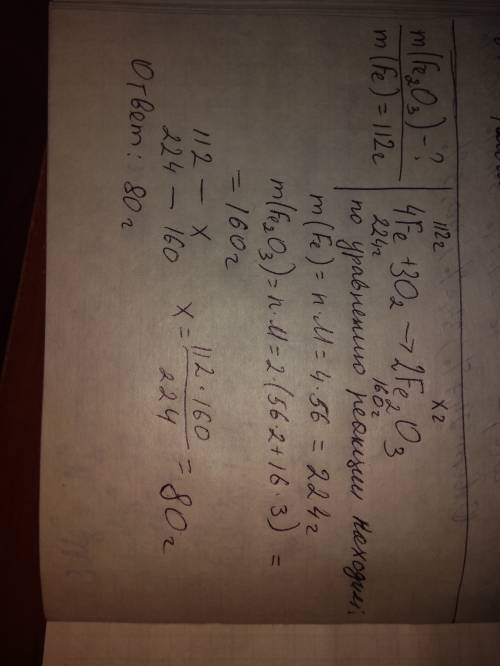 m(Fe₂O₃) - ?
m(Fe) = 112г
112г хг
4Fe + 3O₂ → 2Fe₂O₃
224г 160г
по уравнению реакции находим:
m(Fe) = n·M = 4·56 = 224г
m(Fe₂O₃) = n·M = 2·(56·2+16·3) =
= 160г
112 — х
224 — 160
х = 112·160 / 224 = 80г
Ответ: 80г